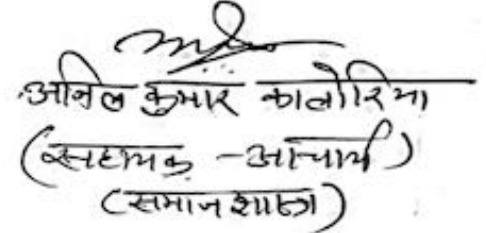 अनिल कुमार कालोरिया
(सहायक - आचार्य)
(समाज शास्त्र)